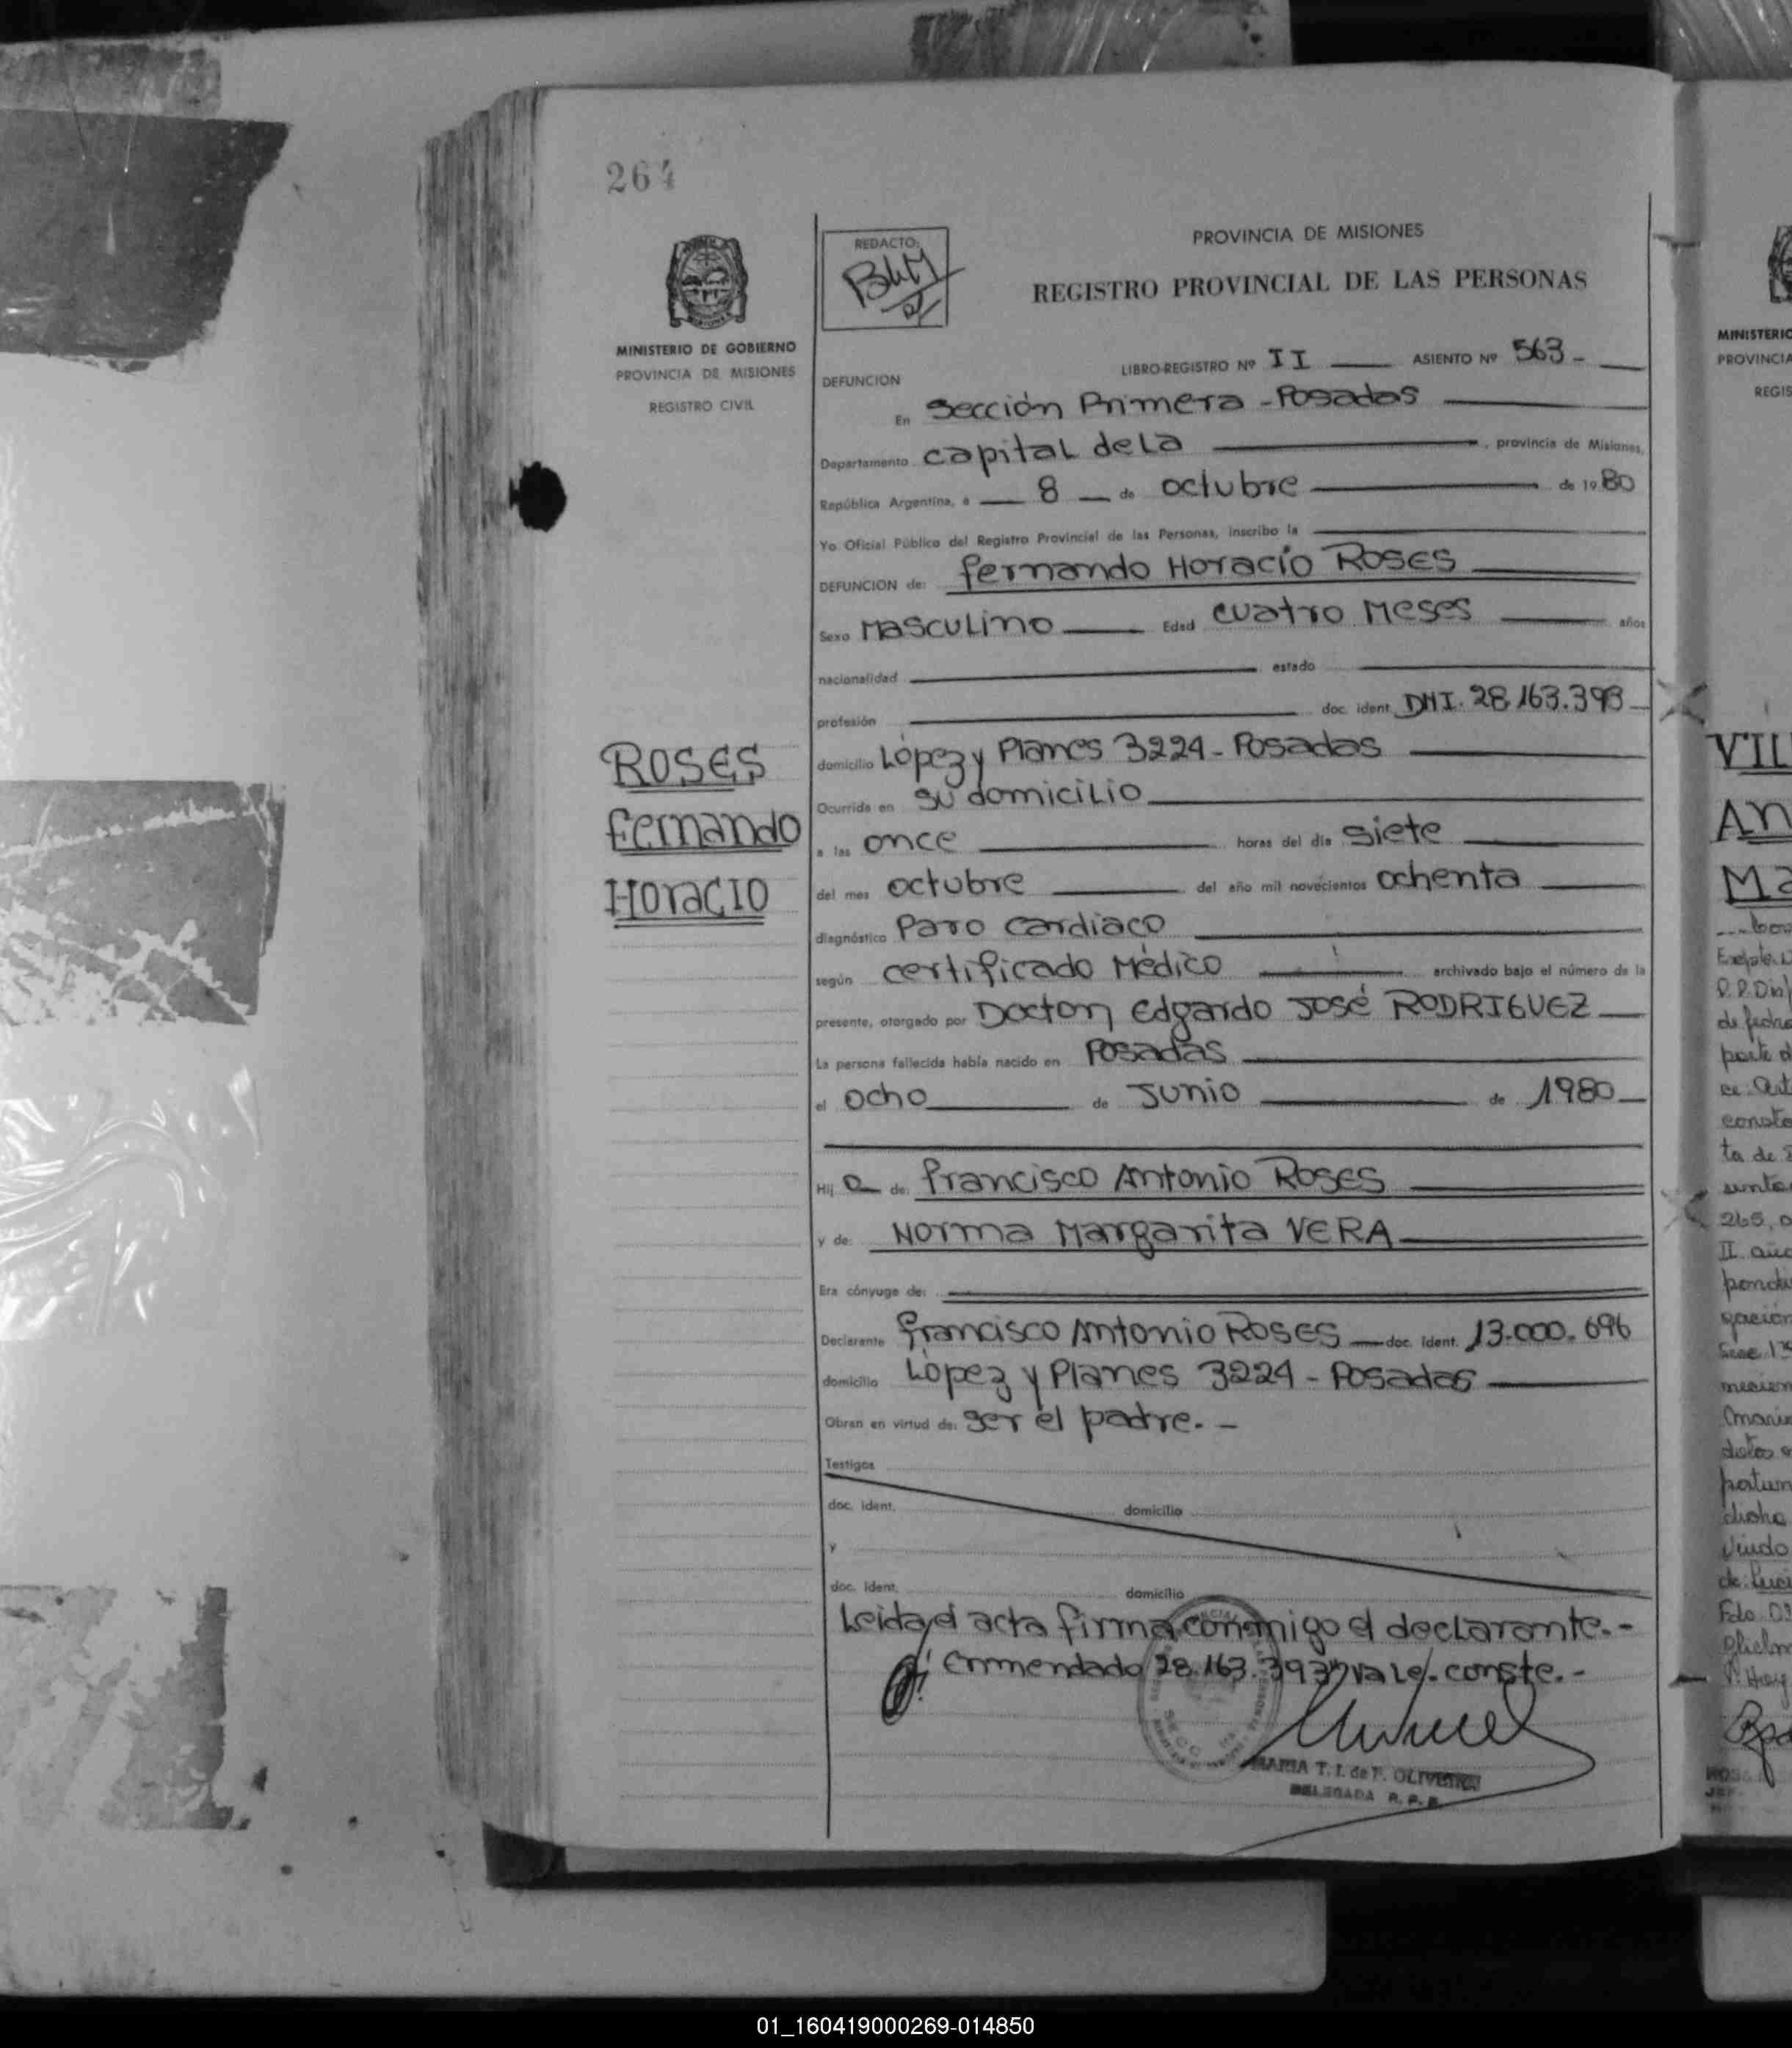 264
MINISTERIO DE GOBIERNO
PROVINCIA DE MISIONES
REGISTRO CIVIL
REDACTO:
PROVINCIA DE MISIONES
REGISTRO PROVINCIAL DE LAS PERSONAS
LIBRO-REGISTRO Nº II ASIENTO Nº 563-
DEFUNCION
En Sección Primera - Posadas
Departamento capital de la , provincia de Misiones,
República Argentina, a 8 de octubre de 1980
Yo Oficial Público del Registro Provincial de las Personas, inscribo la
DEFUNCION de: fernando Horacio ROSES
Sexo Masculino Edad cuatro Meses años
nacionalidad estado
profesión doc. ident. DNI. 28.163.393
ROSES
Fernando
Horacio
domicilio López y Planes 3224 - Posadas
Ocurrida en su domicilio
a las once horas del día siete
del mes octubre del año mil novecientos ochenta
diagnóstico Paro cardiaco
según certificado Médico archivado bajo el número de la
presente, otorgado por Doctor Edgardo José RODRIGUEZ
La persona fallecida había nacido en Posadas
el ocho de Junio de 1980
Hij o de: francisco Antonio ROSES
y de: Norma Margarita VERA
Era cónyuge de:
Declarante francisco Antonio ROSES doc. ident. 13.000.696
domicilio López y Planes 3224 - Posadas
Obran en virtud de: ser el padre.-
Testigos
doc. ident. domicilio
y
doc. ident. domicilio
Leida el acta firma conmigo el declarante.-
Enmendado 28.163.393" vale. conste.-
MARIA T. I. de F. OLIVEIRA
DELEGADA R. P. P.
MINISTERIO
PROVINCIA
REGIS
VIL
An
Ma
01_160419000269-014850